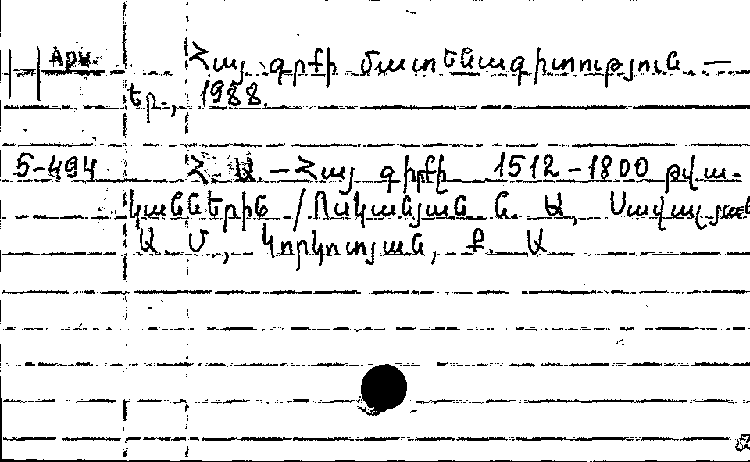 Арм. Հայ գրքի մատենագիտություն. —
Եր., 1988.
5-494 Հ. Ա. — Հայ գիրքի 1512-1800 թվա-
կաններին /Ոսկանյան Ն. Ա, Սավալյան
Ա Մ., Կորկոտյան, Ք. Ա